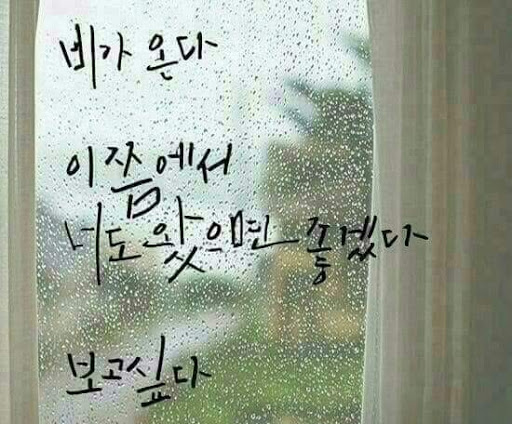 비가 온다
이쯤에서
너도 왔으면 좋겠다
보고싶다